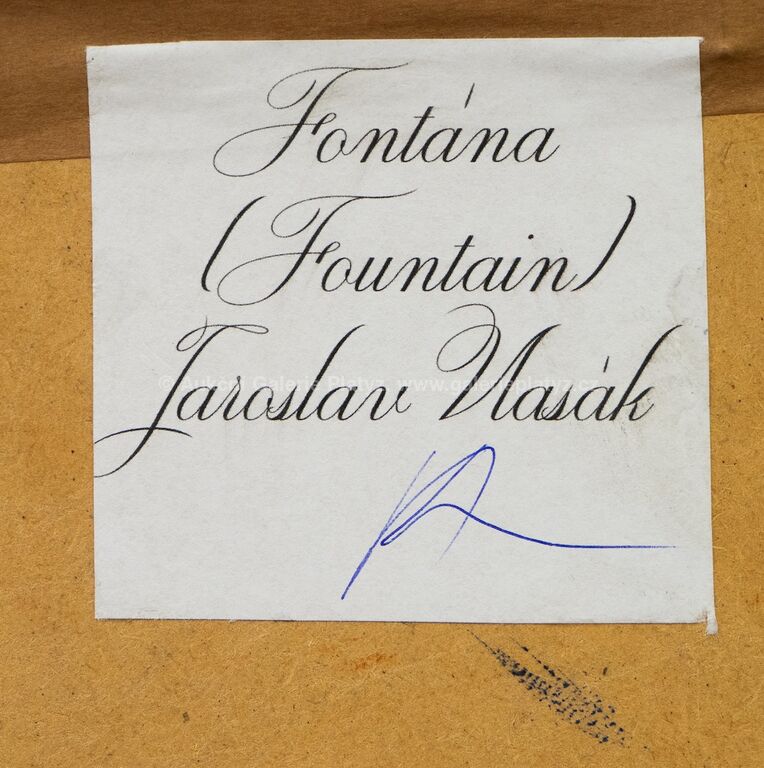 Fontána
(Fountain)
Jaroslav Vlasák
© Aukční Galerie Platýz, www.galerieplatyz.cz